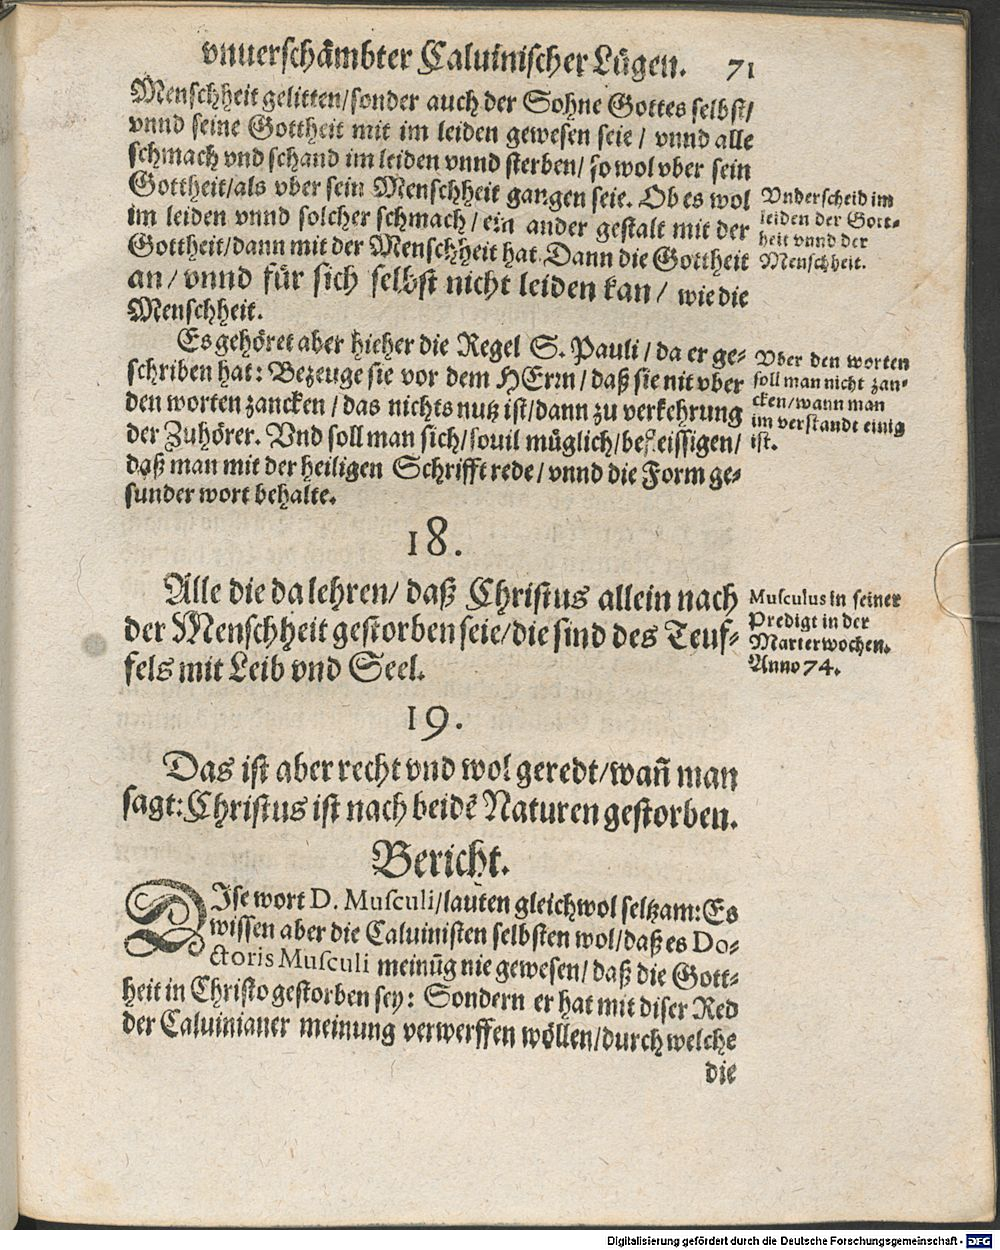 vnuerschämbter Caluinischer Lügen. 71
Menschheit gelitten/sonder auch der Sohne Gottes selbst/
vnnd seine Gottheit mit im leiden gewesen seie / vnnd alle
schmach vnd schand im leiden vnnd sterben/ so wol vber sein
Gottheit/als vber sein Menschheit gangen seie. Ob es wol
im leiden vnnd solcher schmach/ ein ander gestalt mit der
Gottheit/dann mit der Menschheit hat. Dann die Gottheit
an/ vnnd für sich selbst nicht leiden kan/ wie die
Menschheit.
Vnderscheid im
leiden der Gott-
heit vnnd der
Menschheit.
Es gehöret aber hieher die Regel S. Pauli/ da er ge-
schriben hat: Bezeuge sie vor dem HErrn/ daß sie nit vber
den worten zancken/ das nichts nutz ist/dann zu verkehrung
der Zuhörer. Vnd soll man sich/souil müglich/befleissigen/
daß man mit der heiligen Schrifft rede/ vnnd die Form ge-
sunder wort behalte.
Vber den worten
soll man nicht zan-
cken/wann man
im verstandt einig
ist.
18.
Alle die da lehren/ daß Christus allein nach
der Menschheit gestorben seie/die sind des Teuf-
fels mit Leib vnd Seel.
Musculus in seiner
Predigt in der
Marterwochen.
Anno 74.
19.
Das ist aber recht vnd wol geredt/wañ man
sagt: Christus ist nach beidē Naturen gestorben.
Bericht.
DIse wort D. Musculi/lauten gleichwol seltzam: Es
wissen aber die Caluinisten selbsten wol/daß es Do-
ctoris Musculi meinūg nie gewesen/ daß die Gott-
heit in Christo gestorben sey: Sondern er hat mit diser Red
der Caluinianer meinung verwerffen wöllen/durch welche
die
Digitalisierung gefördert durch die Deutsche Forschungsgemeinschaft - DFG